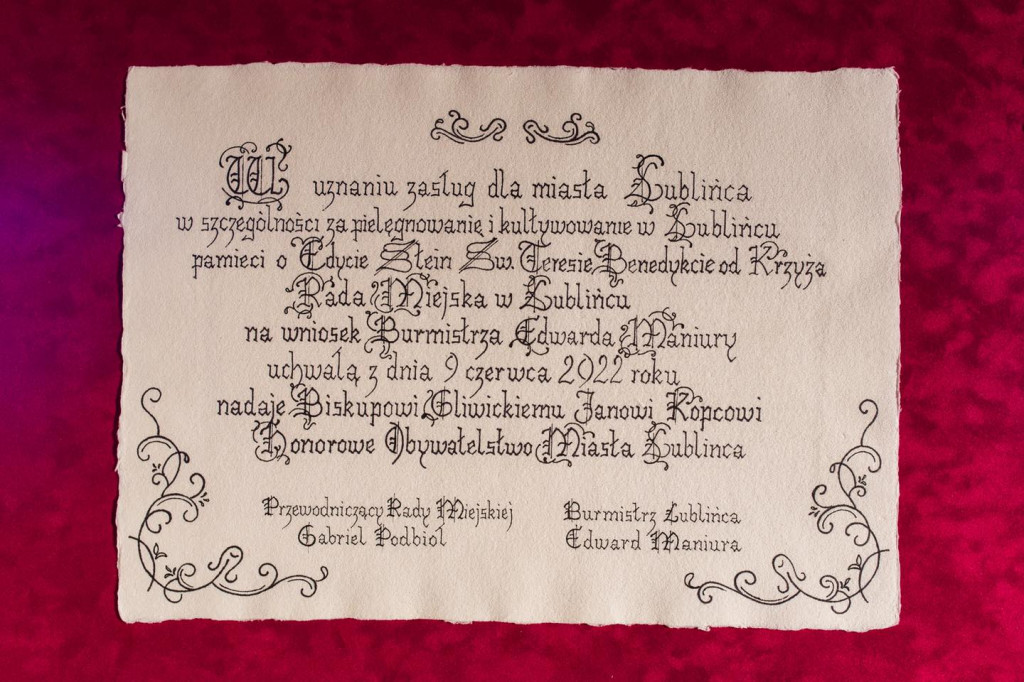 W uznaniu zasług dla miasta Lublińca
w szczególności za pielęgnowanie i kultywowanie w Lublińcu
pamieci o Edycie Stein Św. Teresie Benedykcie od Krzyża
Rada Miejska w Lublińcu
na wniosek Burmistrza Edwarda Maniury
uchwałą z dnia 9 czerwca 2022 roku
nadaje Biskupowi Gliwickiemu Janowi Kopcowi
Honorowe Obywatelstwo Miasta Lublinca
Przewodniczący Rady Miejskiej
Gabriel Podbioł
Burmistrz Lublińca
Edward Maniura